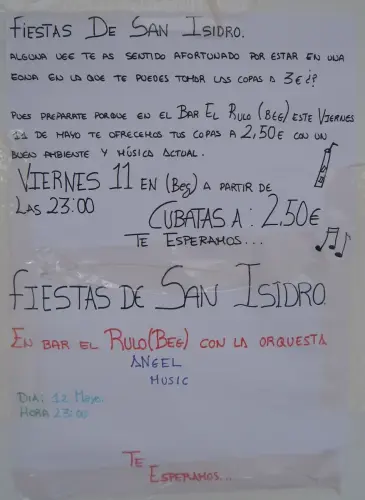 FIESTAS DE SAN ISIDRO.
ALGUNA VEE TE AS SENTIDO AFORTUNADO POR ESTAR EN UNA
EONA EN LA QUE TE PUEDES TOMAR LAS COPAS A 3€¿?
PUES PREPARATE PORQUE EN EL BAR EL RULO (BEG) ESTE VIERNES
11 DE MAYO TE OFRECEMOS TUS COPAS A 2,50€ CON UN
BUEN AMBIENTE Y MÚSICA ACTUAL.
VIERNES 11 EN (Beg) A PARTIR DE
LAS 23:00
CUBATAS A: 2,50€
TE ESPERAMOS...
FIESTAS DE SAN ISIDRO
EN BAR EL RULO (BEG) CON LA ORQUESTA
ANGEL
MUSIC
DIA: 12 Mayo
HORA 23:00
TE
ESPERAMOS...